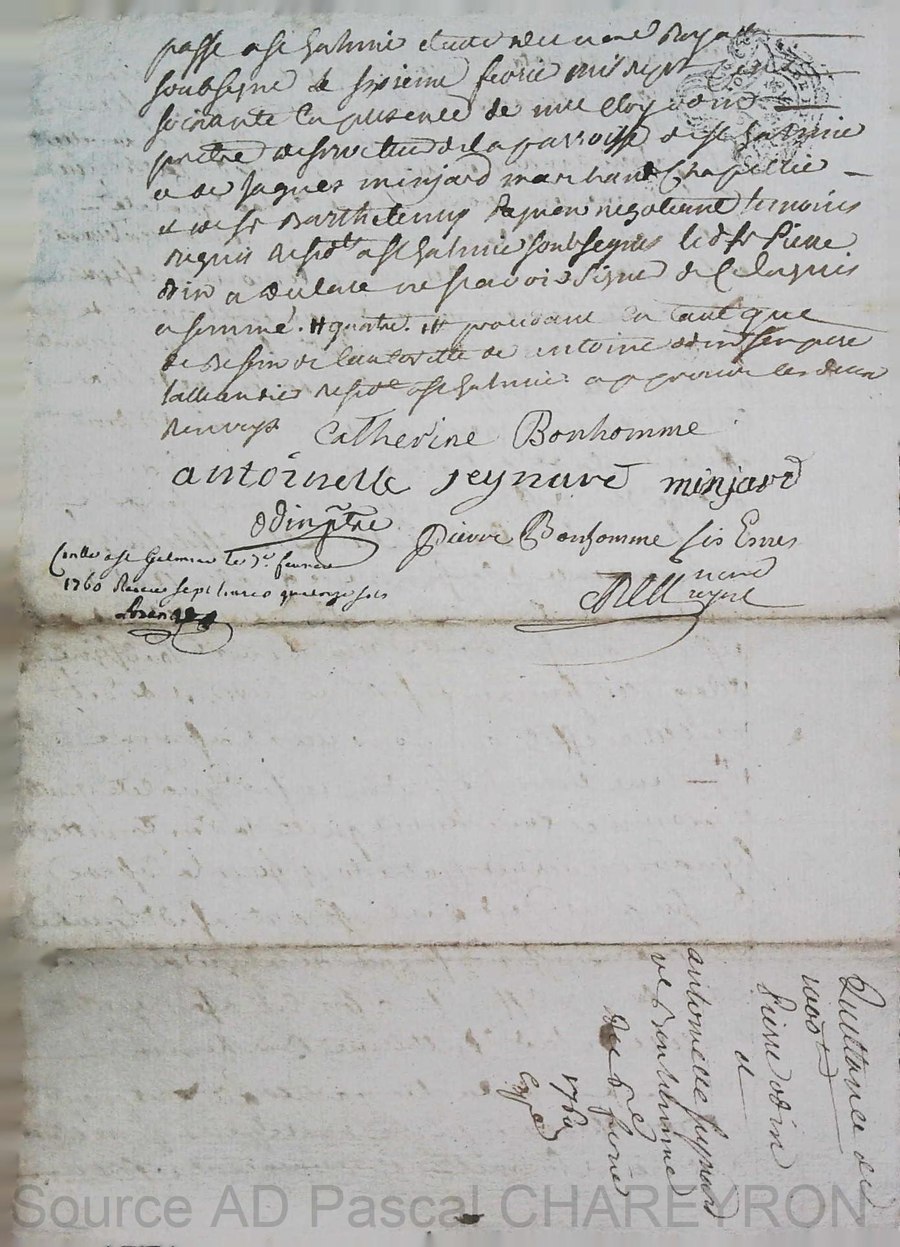 passé a st Galmie etude du no.re Royal
soubsigné le sixieme fevrie mil sept cent
soixante En presence de mre Eloy odin
pretre de la parroisse de st Galmie
et de Jaques minjard marchand Chapellie
et de sr Barthelemy negotiant temoins
requis residt a st Galmie soubsignés led sr Pierre
odin a declaré ne scavoir signe de Ce Enquis
et sommé. # quatre. ## procedant En tant que
de Besoin de l'autorité de antoine odin son pere
residt a st Galmie. approuvé les deux
Renvoys Catherine Bonhomme
antoinette seynard minjard
Odin ptre Pierre Bonhomme fis
Conllé a st Galmier le 7e fevrier
1760 Receu sept livres quatorze sols
no.re
royal
Quittance de
1000
Pierre odin
et
antoinette seynard
ve Bonhomme
Du 6 fevrie
1760
Expé
Source AD Pascal CHAREYRON